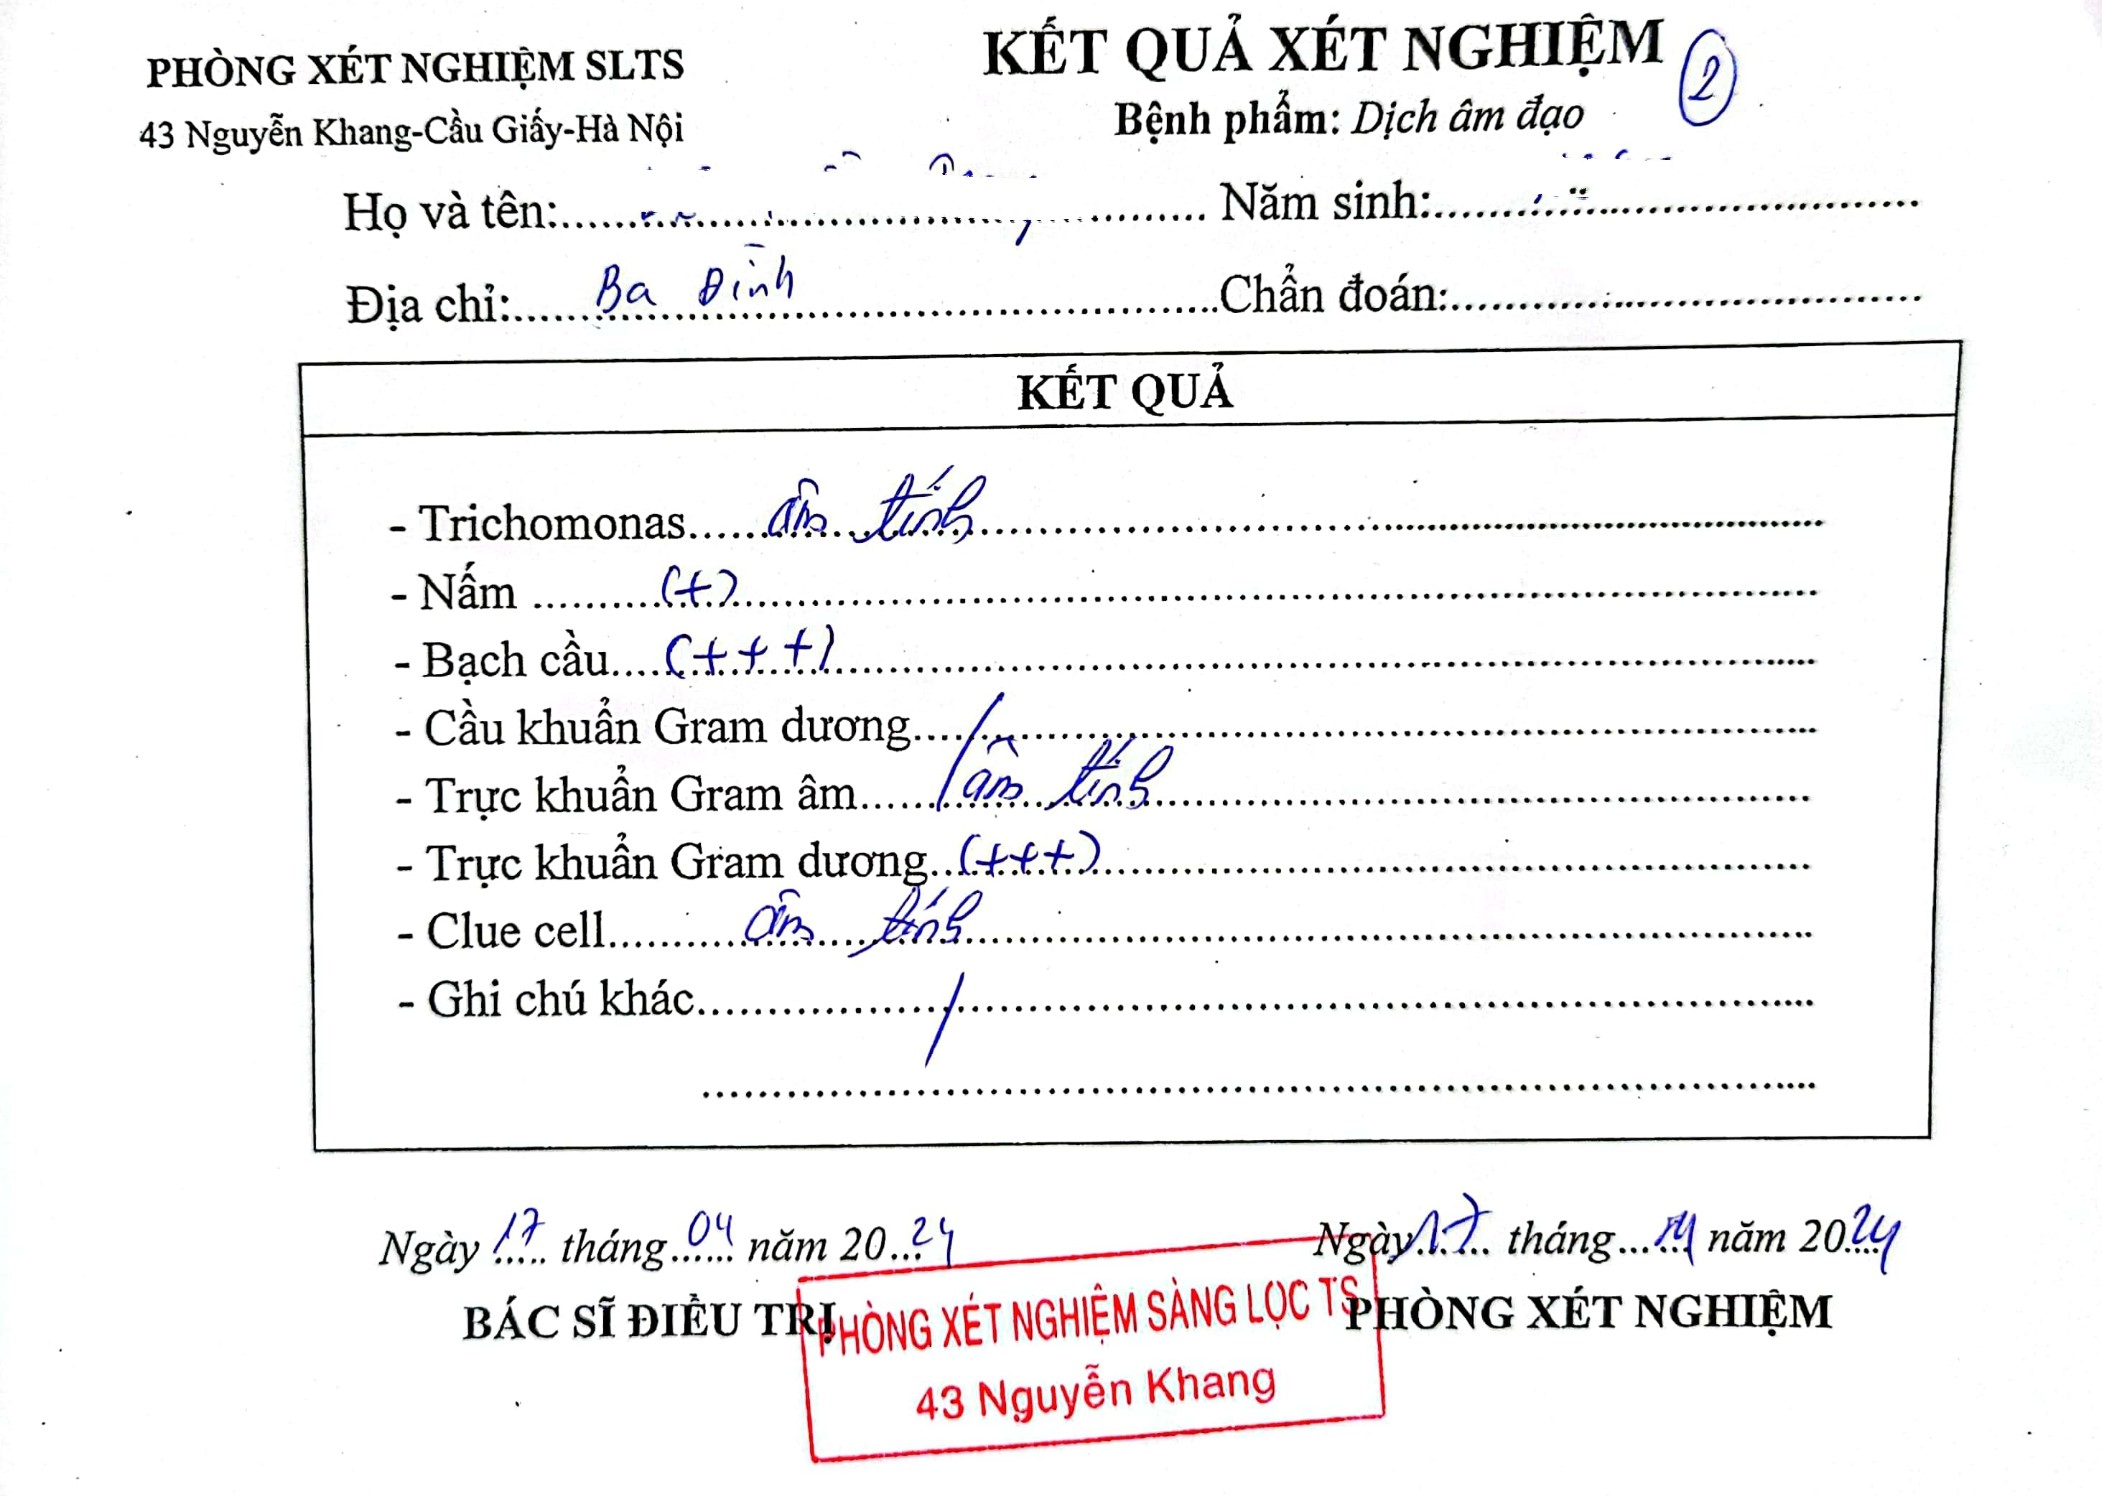 PHÒNG XÉT NGHIỆM SLTS
43 Nguyễn Khang-Cầu Giấy-Hà Nội
KẾT QUẢ XÉT NGHIỆM 2
Bệnh phẩm: Dịch âm đạo
Họ và tên:........ Năm sinh:........
Địa chỉ:......Ba Đình........Chẩn đoán:........
KẾT QUẢ
- Trichomonas......âm tính........
- Nấm ..........(+)........
- Bạch cầu....(+++)........
- Cầu khuẩn Gram dương..../........
- Trực khuẩn Gram âm......âm tính........
- Trực khuẩn Gram dương..(+++)........
- Clue cell..........âm tính........
- Ghi chú khác........../........
Ngày 17 tháng 04 năm 2024
BÁC SĨ ĐIỀU TRỊ
Ngày 17 tháng năm 2024
PHÒNG XÉT NGHIỆM
PHÒNG XÉT NGHIỆM SÀNG LỌC TS
43 Nguyễn Khang